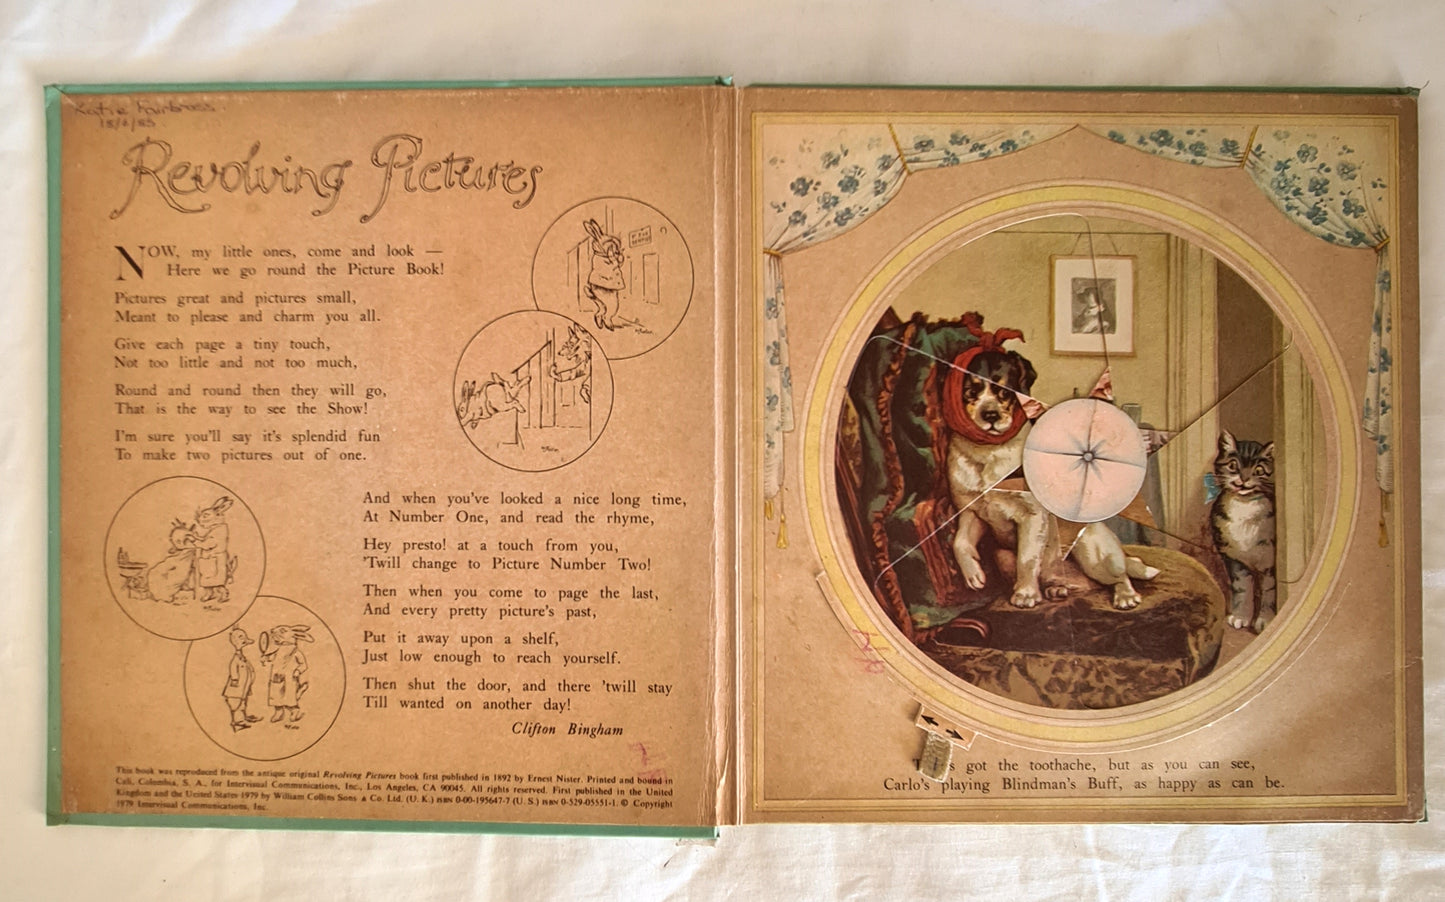 Katie Fairbrass
18/2/83
Revolving Pictures
NOW, my little ones, come and look —
Here we go round the Picture Book!
Pictures great and pictures small,
Meant to please and charm you all.
Give each page a tiny touch,
Not too little and not too much,
Round and round then they will go,
That is the way to see the Show!
I'm sure you'll say it's splendid fun
To make two pictures out of one.
And when you've looked a nice long time,
At Number One, and read the rhyme,
Hey presto! at a touch from you,
'Twill change to Picture Number Two!
Then when you come to page the last,
And every pretty picture's past,
Put it away upon a shelf,
Just low enough to reach yourself.
Then shut the door, and there 'twill stay
Till wanted on another day!
Clifton Bingham
This book was reproduced from the antique original Revolving Pictures book first published in 1892 by Ernest Nister. Printed and bound in
Cali, Colombia, S. A., for Intervisual Communications, Inc., Los Angeles, CA 90045. All rights reserved. First published in the United
Kingdom and the United States 1979 by William Collins Sons & Co. Ltd. (U. K.) ISBN 0-00-195647-7 (U. S.) ISBN 0-529-05551-1. © Copyright
1979 Intervisual Communications, Inc.
got the toothache, but as you can see,
Carlo's playing Blindman's Buff, as happy as can be.